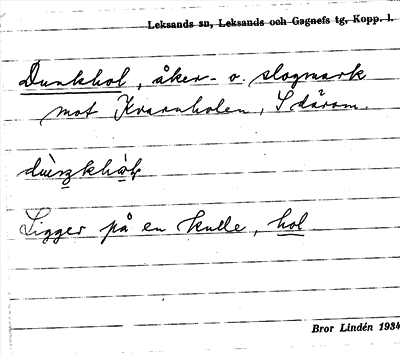 Leksands sn, Leksands och Gagnefs tg. Kopp. l.
Dunkhol, åker- o. slogmark
mot Kvarnholen, S därom.
Ligger på en kulle, hol
Bror Lindén 1934